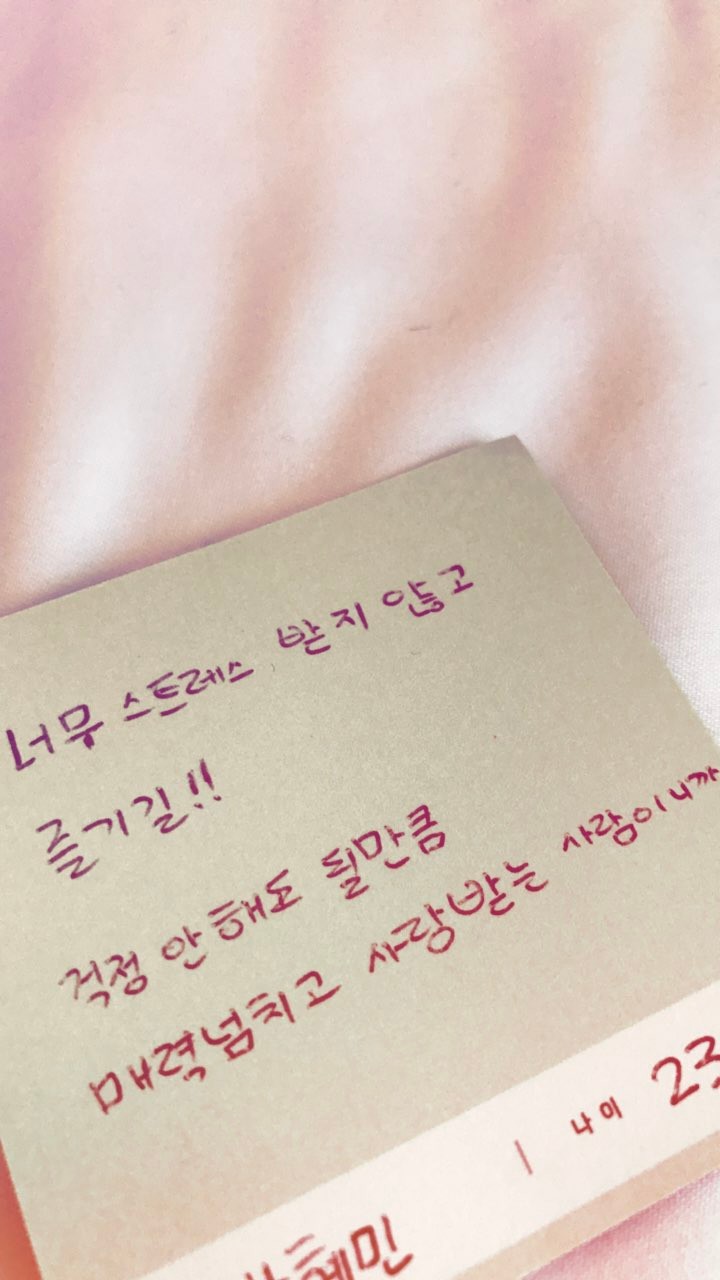 너무 스트레스 받지 않고
즐기길!!
걱정 안해도 될만큼
매력넘치고 사랑받는 사람이니까
| 나이 23
혜민